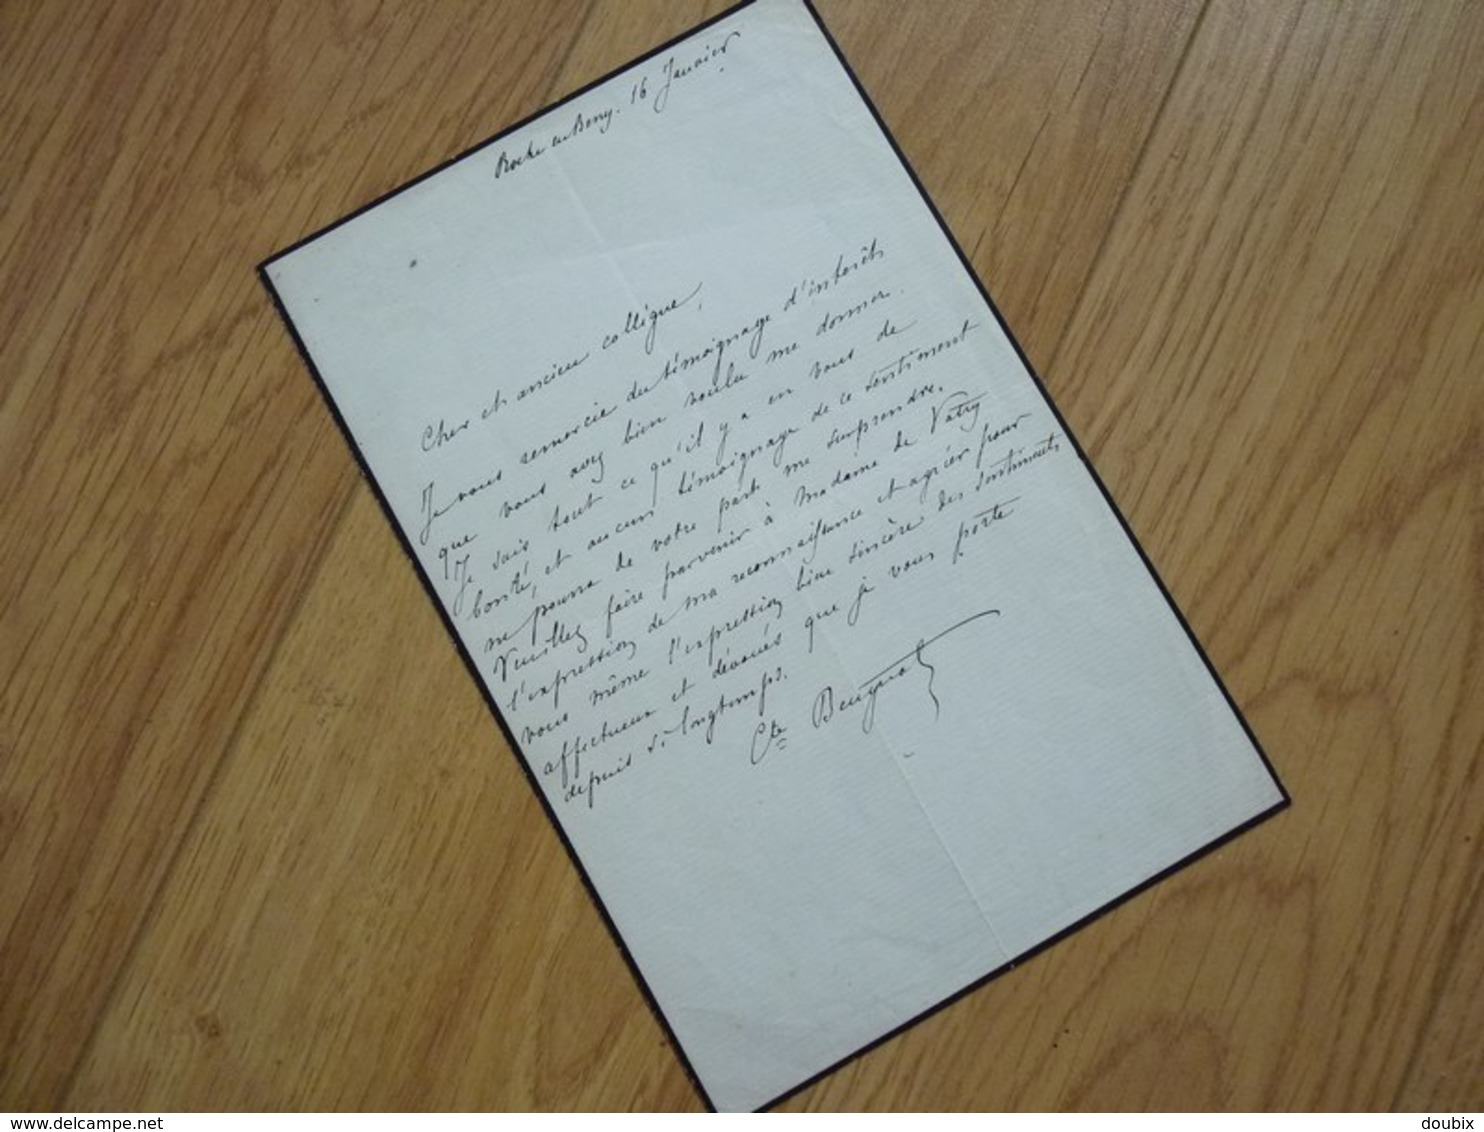 Roche en Breny. 16 Janvier
Cher et ancien collègue,
Je vous remercie du témoignage d'interêt
que vous avez bien voulu me donner.
Je sais tout ce qu'il y a en vous de
bonté, et aucun témoignage de ce sentiment
ne pourra de votre part me surprendre.
Veuillez faire parvenir à Madame de Vatry
l'expression de ma reconnaissance et agréer pour
vous même l'expression bien sincère des sentiments
affectueux et dévoués que je vous porte
depuis si longtemps.
Cte Beugnot
delcampe.net
doubix